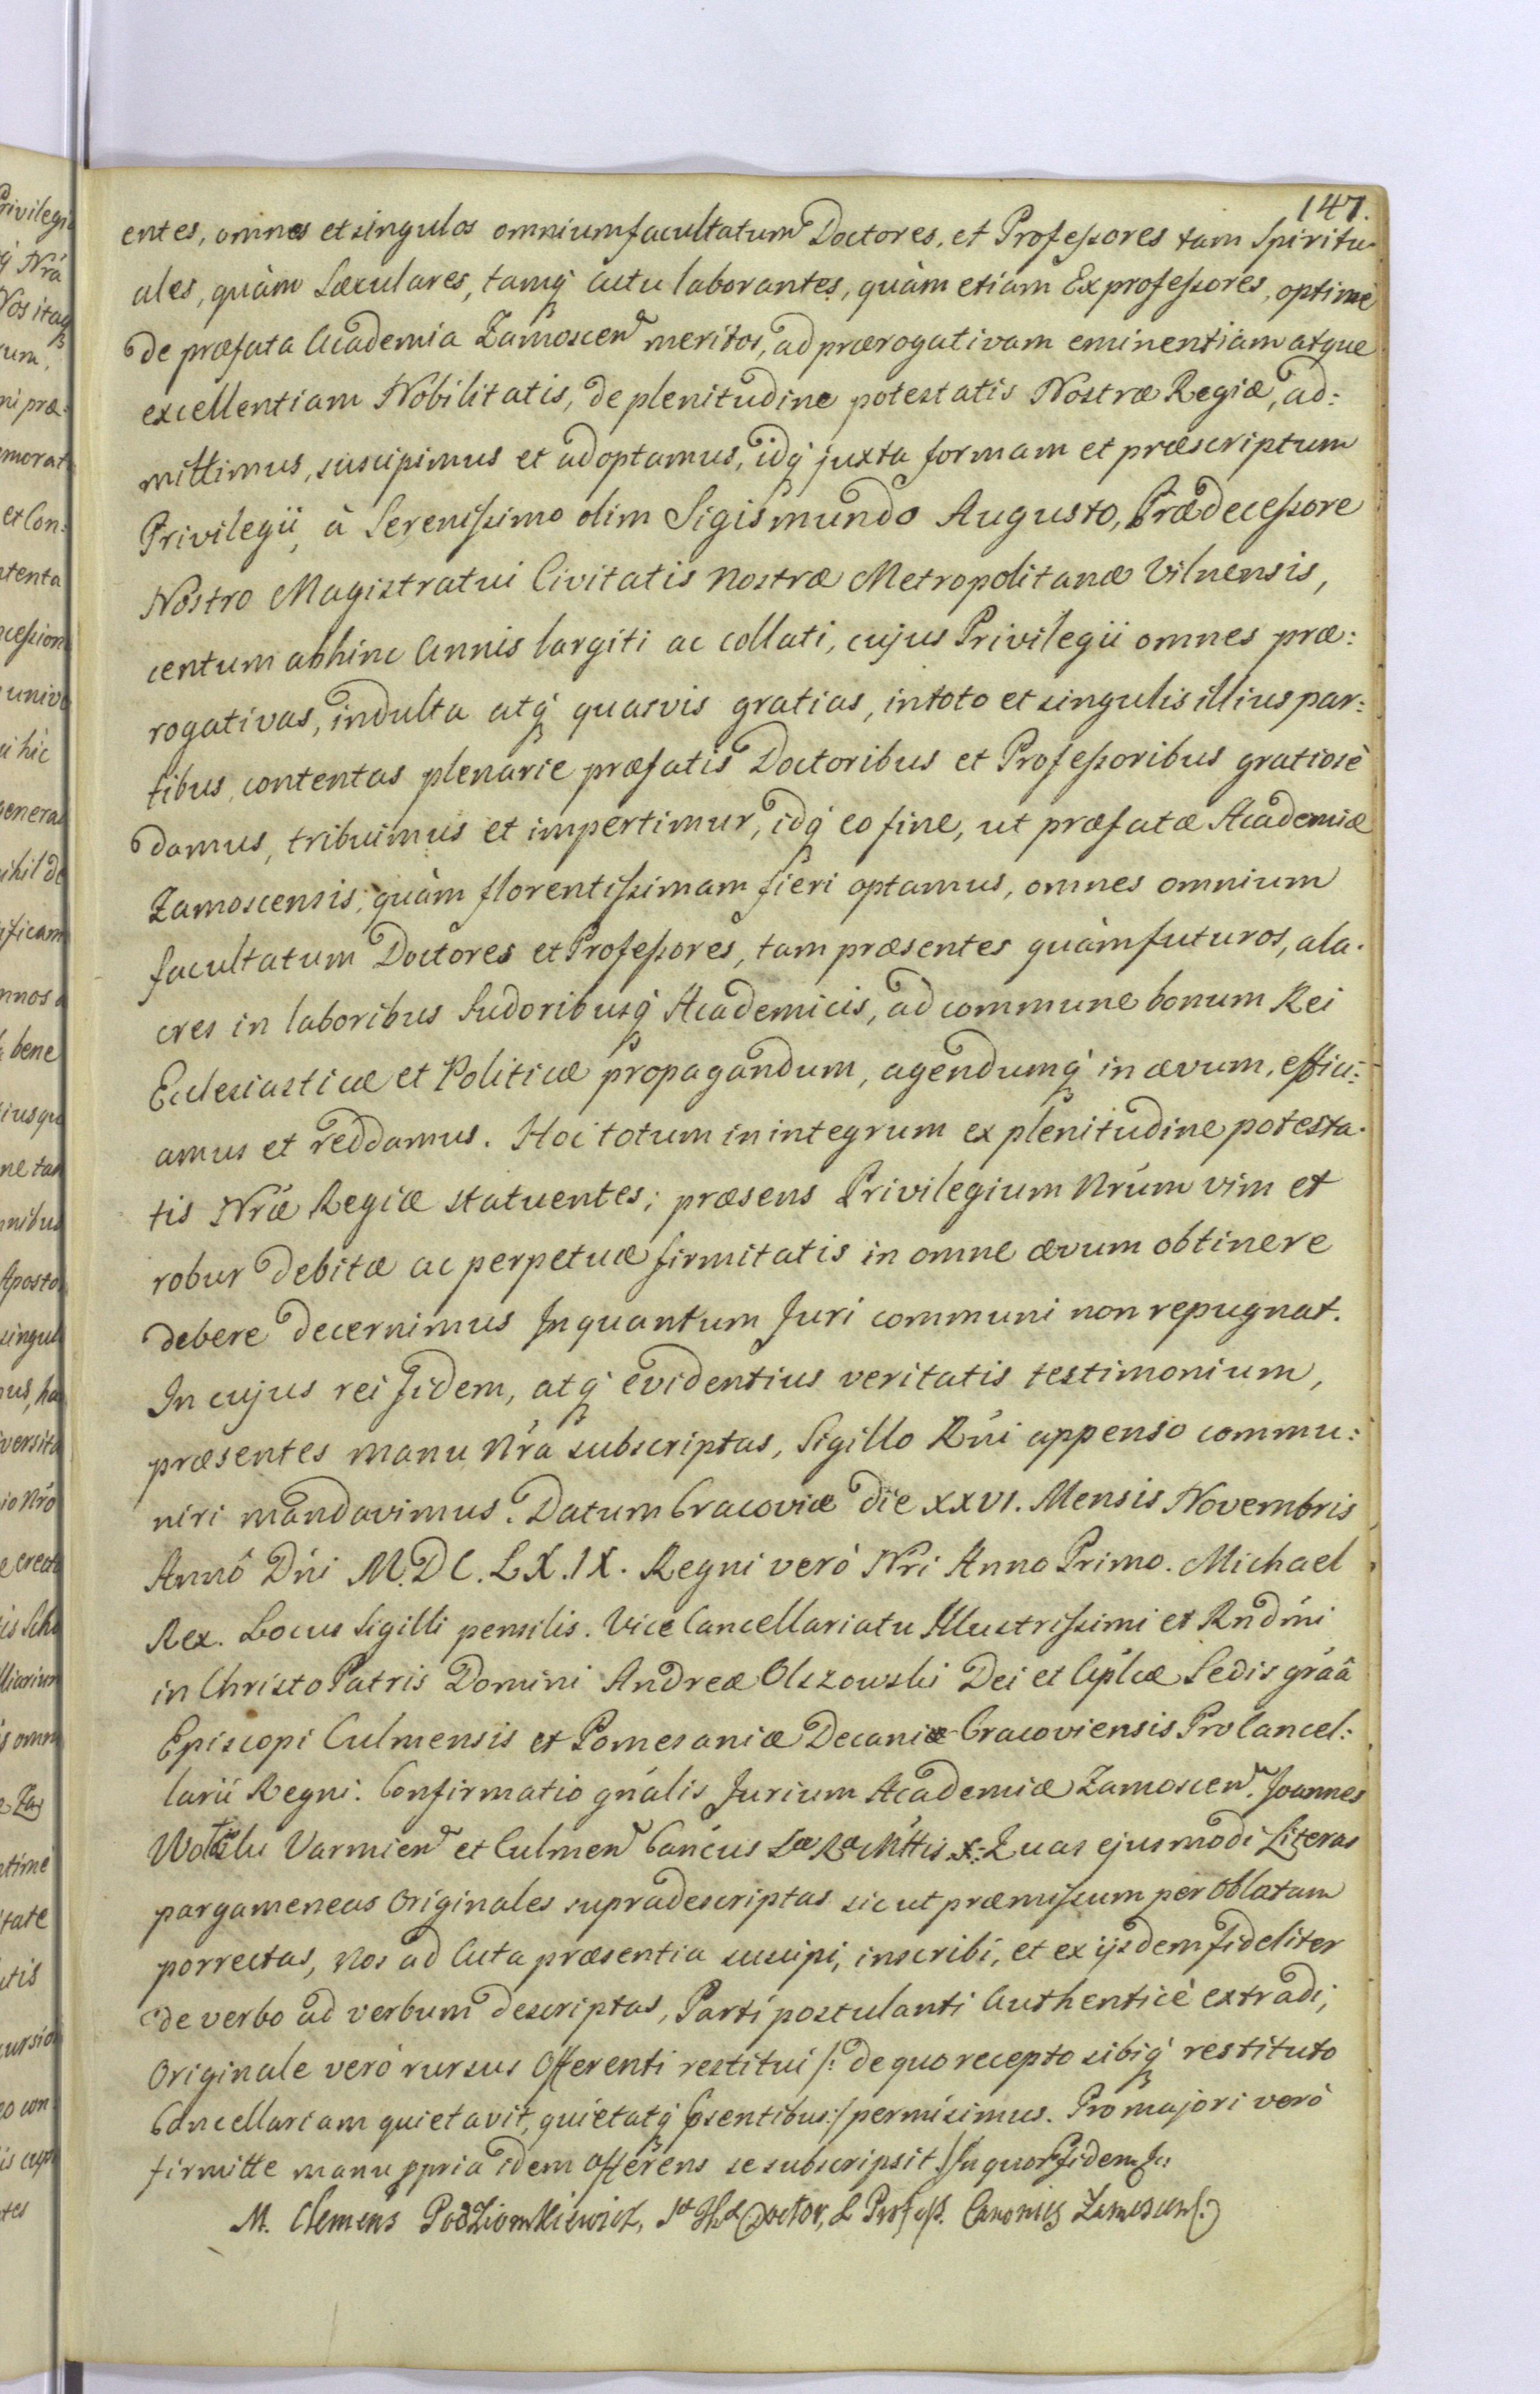 147.
entes, omnes et singulos omnium facultatum Doctores, et Professores tam Spiritu-
ales, quàm Sæculares, tamq́ actu laborantes, quàm etiam Exprofessores, optimè
de præfata Academia Zamoscen meritos, ad prærogativam eminentiam atque
excellentiam Nobilitatis, de plenitudine potestatis Nostræ Regiæ, ad:
mittimus, suscipimus et adoptamus, idq́ juxta formam et præscriptum
Privilegii, à Serenissimo olim Sigismundo Augusto, Prædecessore
Nostro Magistratui Civitatis nostræ Metropolitanæ Vilnensis,
centum abhinc Annis largiti ac collati, cujus Privilegii omnes præ:
rogativas, indulta atq́ quasvis gratias, in toto et singulis illius par:
tibus contentas plenarie præfatis Doctoribus et Professoribus gratiosè
damus, tribuimus et impertimur, idq́ eo fine, ut præfatæ Academiæ
Zamoscensis, quàm florentissimam fieri optamus, omnes omnium
facultatum Doctores et Professores, tam præsentes quàm futuros, ala-
cres in laboribus Sudoribusq́ Academicis, ad commune bonum Rei
Ecclesiasticæ et Politicæ propagandum, agendumq́ in ævum, effici:
amus et reddamus. Hoc totum in integrum ex plenitudine potesta-
tis Nrǽ Regiæ statuentes; præsens Privilegium Nrúm vim et
robur debitæ ac perpetuæ firmitatis in omne ævum obtinere
debere decernimus Inquantum Juri communi non repugnat.
In cujus rei fidem, atq́ evidentius veritatis testimonium,
præsentes manu Nrá subscriptas, Sigillo Rńi appenso commu:
niri mandavimus. Datum Cracoviæ die XXVI. Mensis Novembris
Annô Dńi M.DC.LX.IX. Regni verò Nri Anno Primo. Michael
Rex. Locus Sigilli pensilis. Vice Cancellariatu Illustrissimi et Rndḿi
in Christo Patris Domini Andreæ Olszowski Dei et Aplcæ Sedis gráâ
Episcopi Culmensis et Pomesaniæ Decaniæ Cracoviensis Procancel:
larii Regni. Confirmatio gnális Jurium Academiæ Zamoscen. Joannes
Varmien et Culmen Cańcus Sæ Ræ Mttis Quas ejusmodi Literas
pargameneas Originales supradescriptas sicut præmissum per Oblatam
porrectas, Nos ad Acta præsentia suscipi, inscribi, et ex ijsdem fideliter
de verbo ad verbum descriptas, Parti postulanti Authenticè extradi;
Originale verò rursus Offerenti restitui /: de quo recepto sibiq́ restituto
Cancellariam quietavit, quietatq́ psentibus :/ permisimus. Pro majori verò
firmitte manu ppria idem offerens se subscripsit. In quor fidem
M. Clemens Podziomkiewicz, Doctor, & Profess. Canonicg Zamoscen